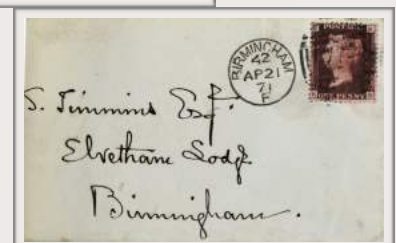 BIRMINGHAM
42
AP 21
71
F
ONE PENNY
S. Timmins Esq.
Elvetham Lodge
Birmingham.